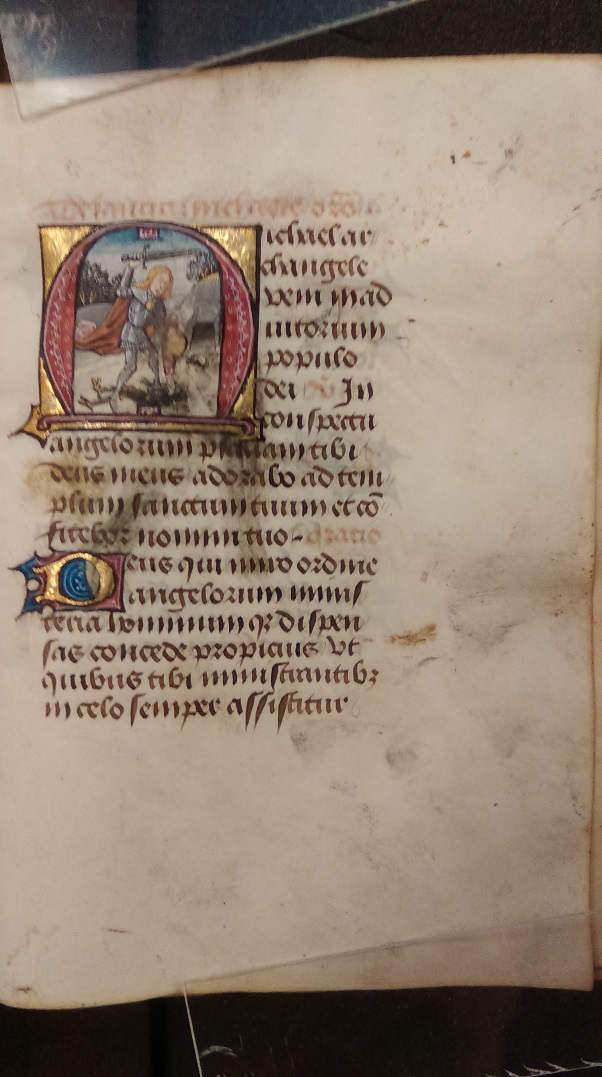 De sancto michaele orõ
Michael ar
changele
veni in ad
iutorium
populo
dei In
conspectu
angelorum psallam tibi
deus meus adorabo ad tem
plum sanctum tuum et cō
fitebor nomini tuo- oratio
Deus qui miro ordine
angelorum minis
teria hominum qꝫ dispen
sas concede propicius vt
quibus tibi ministrantibꝫ
in celo semper assistitur